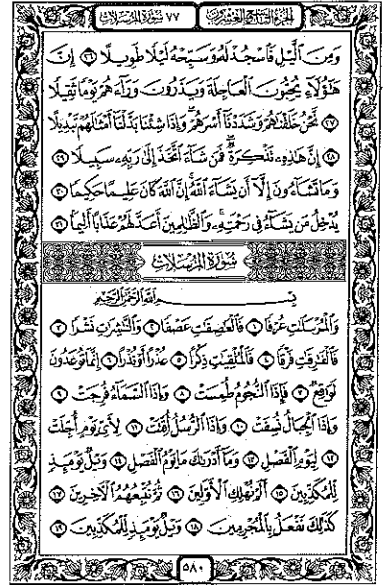 الجزء التاسع والعشرون
٧٧ سورة المرسلات
وَمِنَ ٱلَّيْلِ فَٱسْجُدْ لَهُۥ وَسَبِّحْهُ لَيْلًا طَوِيلًا ٢٦ إِنَّ
هَٰٓؤُلَآءِ يُحِبُّونَ ٱلْعَاجِلَةَ وَيَذَرُونَ وَرَآءَهُمْ يَوْمًا ثَقِيلًا
٢٧ نَّحْنُ خَلَقْنَٰهُمْ وَشَدَدْنَآ أَسْرَهُمْ وَإِذَا شِئْنَا بَدَّلْنَآ أَمْثَٰلَهُمْ تَبْدِيلًا
٢٨ إِنَّ هَٰذِهِۦ تَذْكِرَةٌ فَمَن شَآءَ ٱتَّخَذَ إِلَىٰ رَبِّهِۦ سَبِيلًا ٢٩
وَمَا تَشَآءُونَ إِلَّآ أَن يَشَآءَ ٱللَّهُ إِنَّ ٱللَّهَ كَانَ عَلِيمًا حَكِيمًا ٣٠
يُدْخِلُ مَن يَشَآءُ فِى رَحْمَتِهِۦ وَٱلظَّٰلِمِينَ أَعَدَّ لَهُمْ عَذَابًا أَلِيمًۢا ٣١
سُورَةُ المُرْسَلَات
بِسْمِ ٱللَّهِ ٱلرَّحْمَٰنِ ٱلرَّحِيمِ
وَٱلْمُرْسَلَٰتِ عُرْفًا ١ فَٱلْعَٰصِفَٰتِ عَصْفًا ٢ وَٱلنَّٰشِرَٰتِ نَشْرًا ٣
فَٱلْفَٰرِقَٰتِ فَرْقًا ٤ فَٱلْمُلْقِيَٰتِ ذِكْرًا ٥ عُذْرًا أَوْ نُذْرًا ٦ إِنَّمَا تُوعَدُونَ
لَوَٰقِعٌ ٧ فَإِذَا ٱلنُّجُومُ طُمِسَتْ ٨ وَإِذَا ٱلسَّمَآءُ فُرِجَتْ ٩
وَإِذَا ٱلْجِبَالُ نُسِفَتْ ١٠ وَإِذَا ٱلرُّسُلُ أُقِّتَتْ ١١ لِأَىِّ يَوْمٍ أُجِّلَتْ
١٢ لِيَوْمِ ٱلْفَصْلِ ١٣ وَمَآ أَدْرَىٰكَ مَا يَوْمُ ٱلْفَصْلِ ١٤ وَيْلٌ يَوْمَئِذٍ
لِّلْمُكَذِّبِينَ ١٥ أَلَمْ نُهْلِكِ ٱلْأَوَّلِينَ ١٦ ثُمَّ نُتْبِعُهُمُ ٱلْءَاخِرِينَ ١٧
كَذَٰلِكَ نَفْعَلُ بِٱلْمُجْرِمِينَ ١٨ وَيْلٌ يَوْمَئِذٍ لِّلْمُكَذِّبِينَ ١٩
٥٨٠